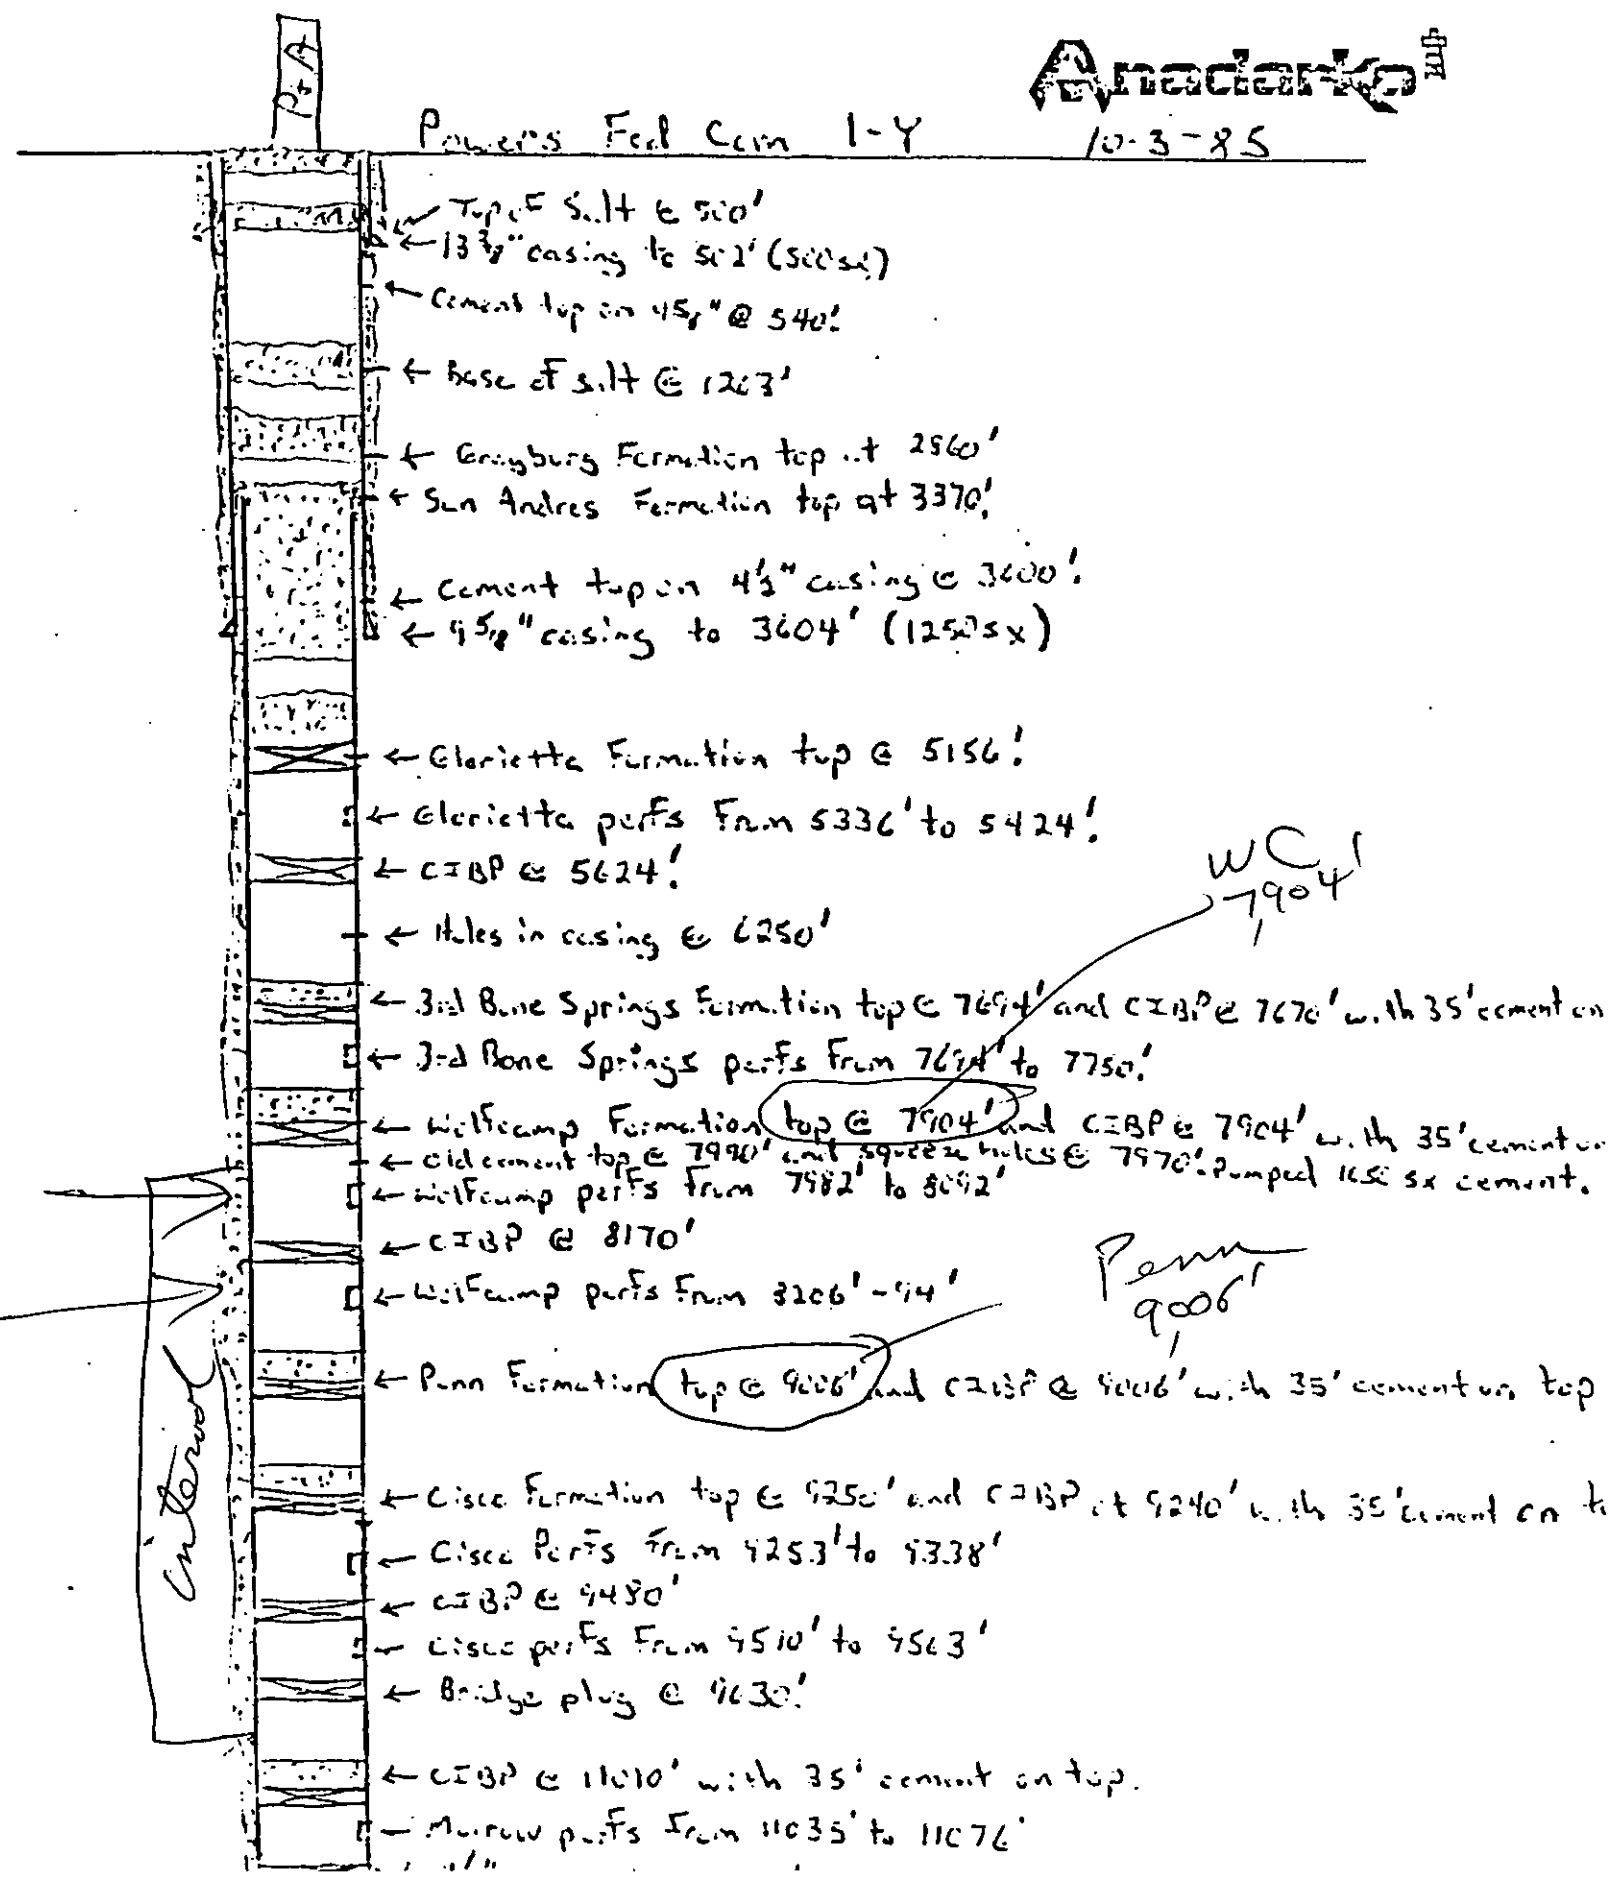 P+A
Anadarko
Powers Fed Com 1-Y 10-3-85
Top of Salt @ 500'
13 3/8" casing to 502' (500sx)
Cement top on 9 5/8" @ 540'.
Base of Salt @ 1263'
Grayburg Formation top at 2860'
San Andres Formation top at 3370'.
Cement top on 4 1/2" casing @ 3600'.
9 5/8" casing to 3604' (1250sx)
Glorietta Formation top @ 5156'.
Glorietta perfs From 5336' to 5424'.
CIBP @ 5624'.
WC
7904'
Holes in casing @ 6250'
3rd Bone Springs Formation top @ 7694' and CIBP @ 7670' with 35' cement on
3rd Bone Springs perfs From 7694' to 7750'.
Wolfcamp Formation top @ 7904' and CIBP @ 7904' with 35' cement on
Old cement top @ 7990' and squeeze holes @ 7970'. Pumped 1650 sx cement.
Wolfcamp perfs From 7982' to 8092'
CIBP @ 8170'
Penn
9006'
Wolfcamp perfs From 8206'-94'
Penn Formation top @ 9006' and CIBP @ 9006' with 35' cement on top
interval
Cisco Formation top @ 9250' and CIBP at 9240' with 35' cement on
Cisco Perfs From 9253' to 9338'
CIBP @ 9480'
Cisco perfs From 9510' to 9563'
Bridge plug @ 9630'.
CIBP @ 11010' with 35' cement on top.
Morrow perfs From 11035' to 11076'